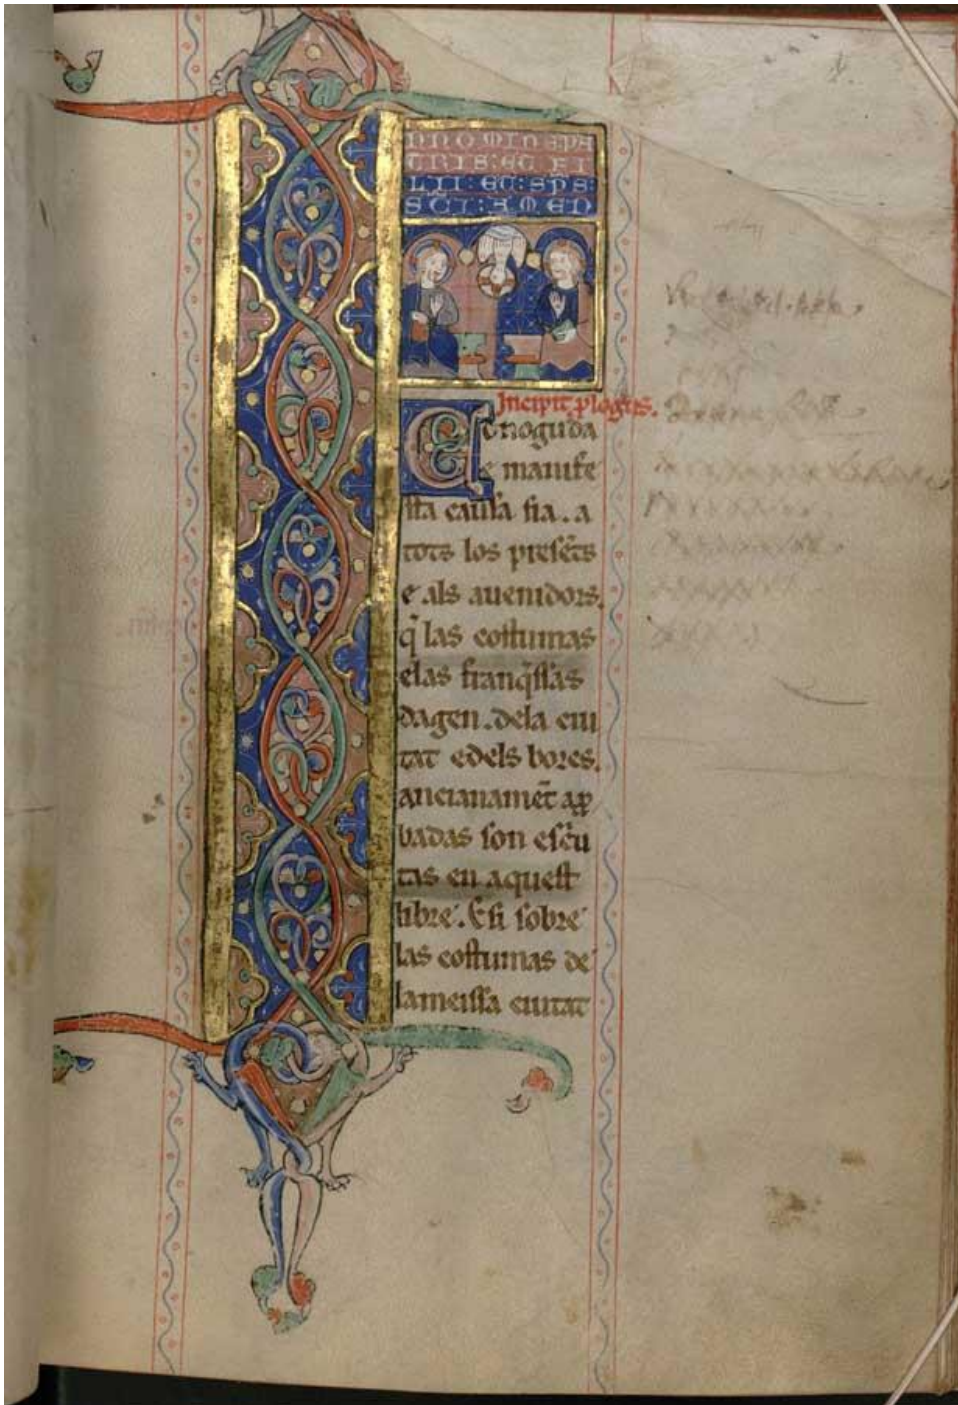 N NOMINE PA
TRIS: ET FI
LII: ET: SP̄S:
SC̄I: AMEN
Incipit p̲logus.
Conoguda
e manife
sta causa sia. a
tots los presēts
e als auenidors.
q̄ las costumas
elas franq̄ssas
dagen. dela ciu
tat edels borcs.
ancianamēt ap̲
badas son escͥu
tas en aquest
libre. E si sobre
las costumas de
lameissa ciutat